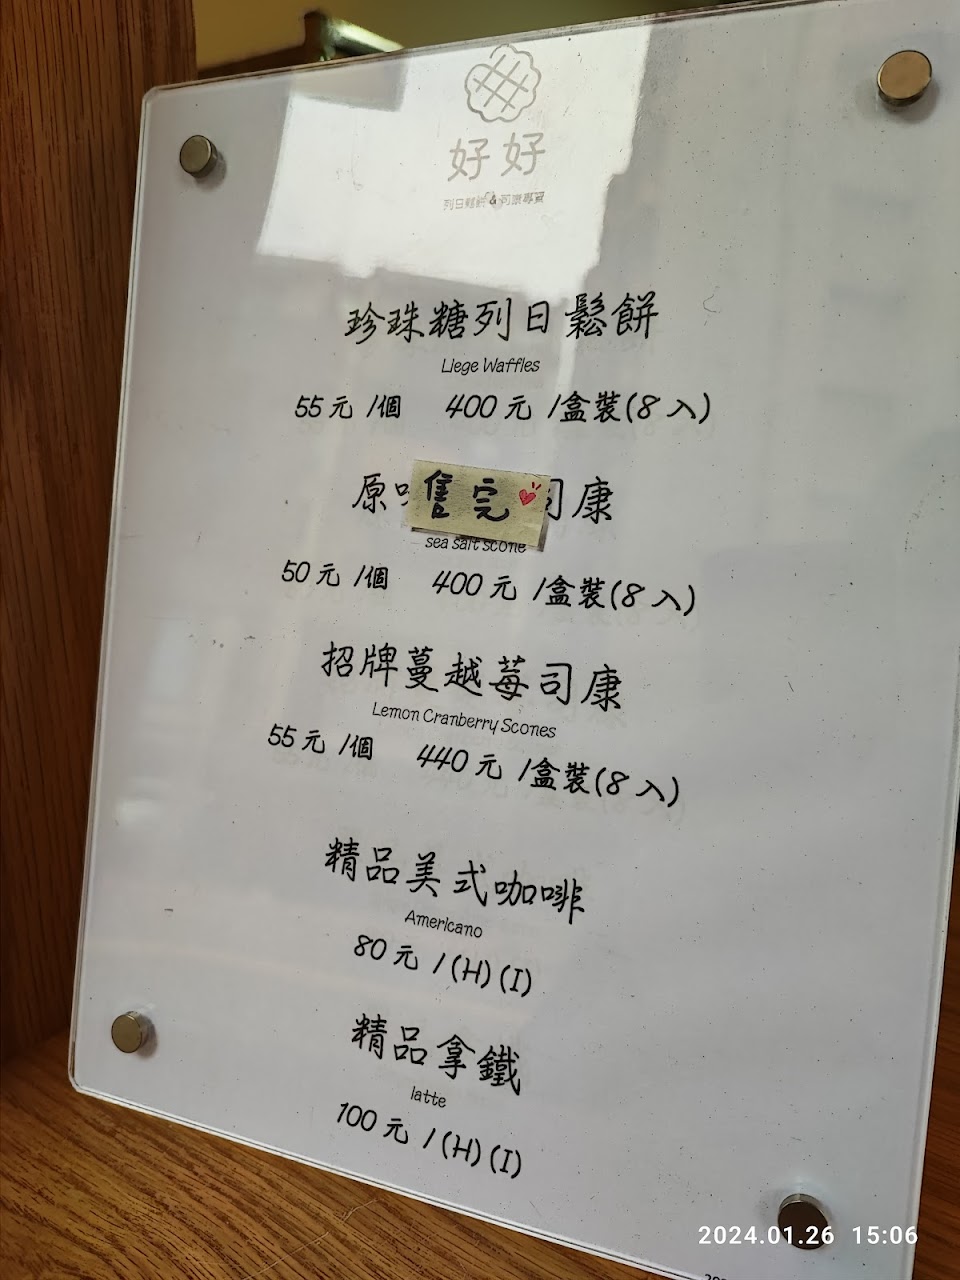 好好
列日鬆餅 & 司康專賣
珍珠糖列日鬆餅
Liege Waffles
55元 /個 400元 /盒裝(8入)
原 售完 司康
sea salt scone
50元 /個 400元 /盒裝(8入)
招牌蔓越莓司康
Lemon Cranberry Scones
55元 /個 440元 /盒裝(8入)
精品美式咖啡
Americano
80元 / (H) (I)
精品拿鐵
latte
100元 / (H) (I)
2024.01.26 15:06